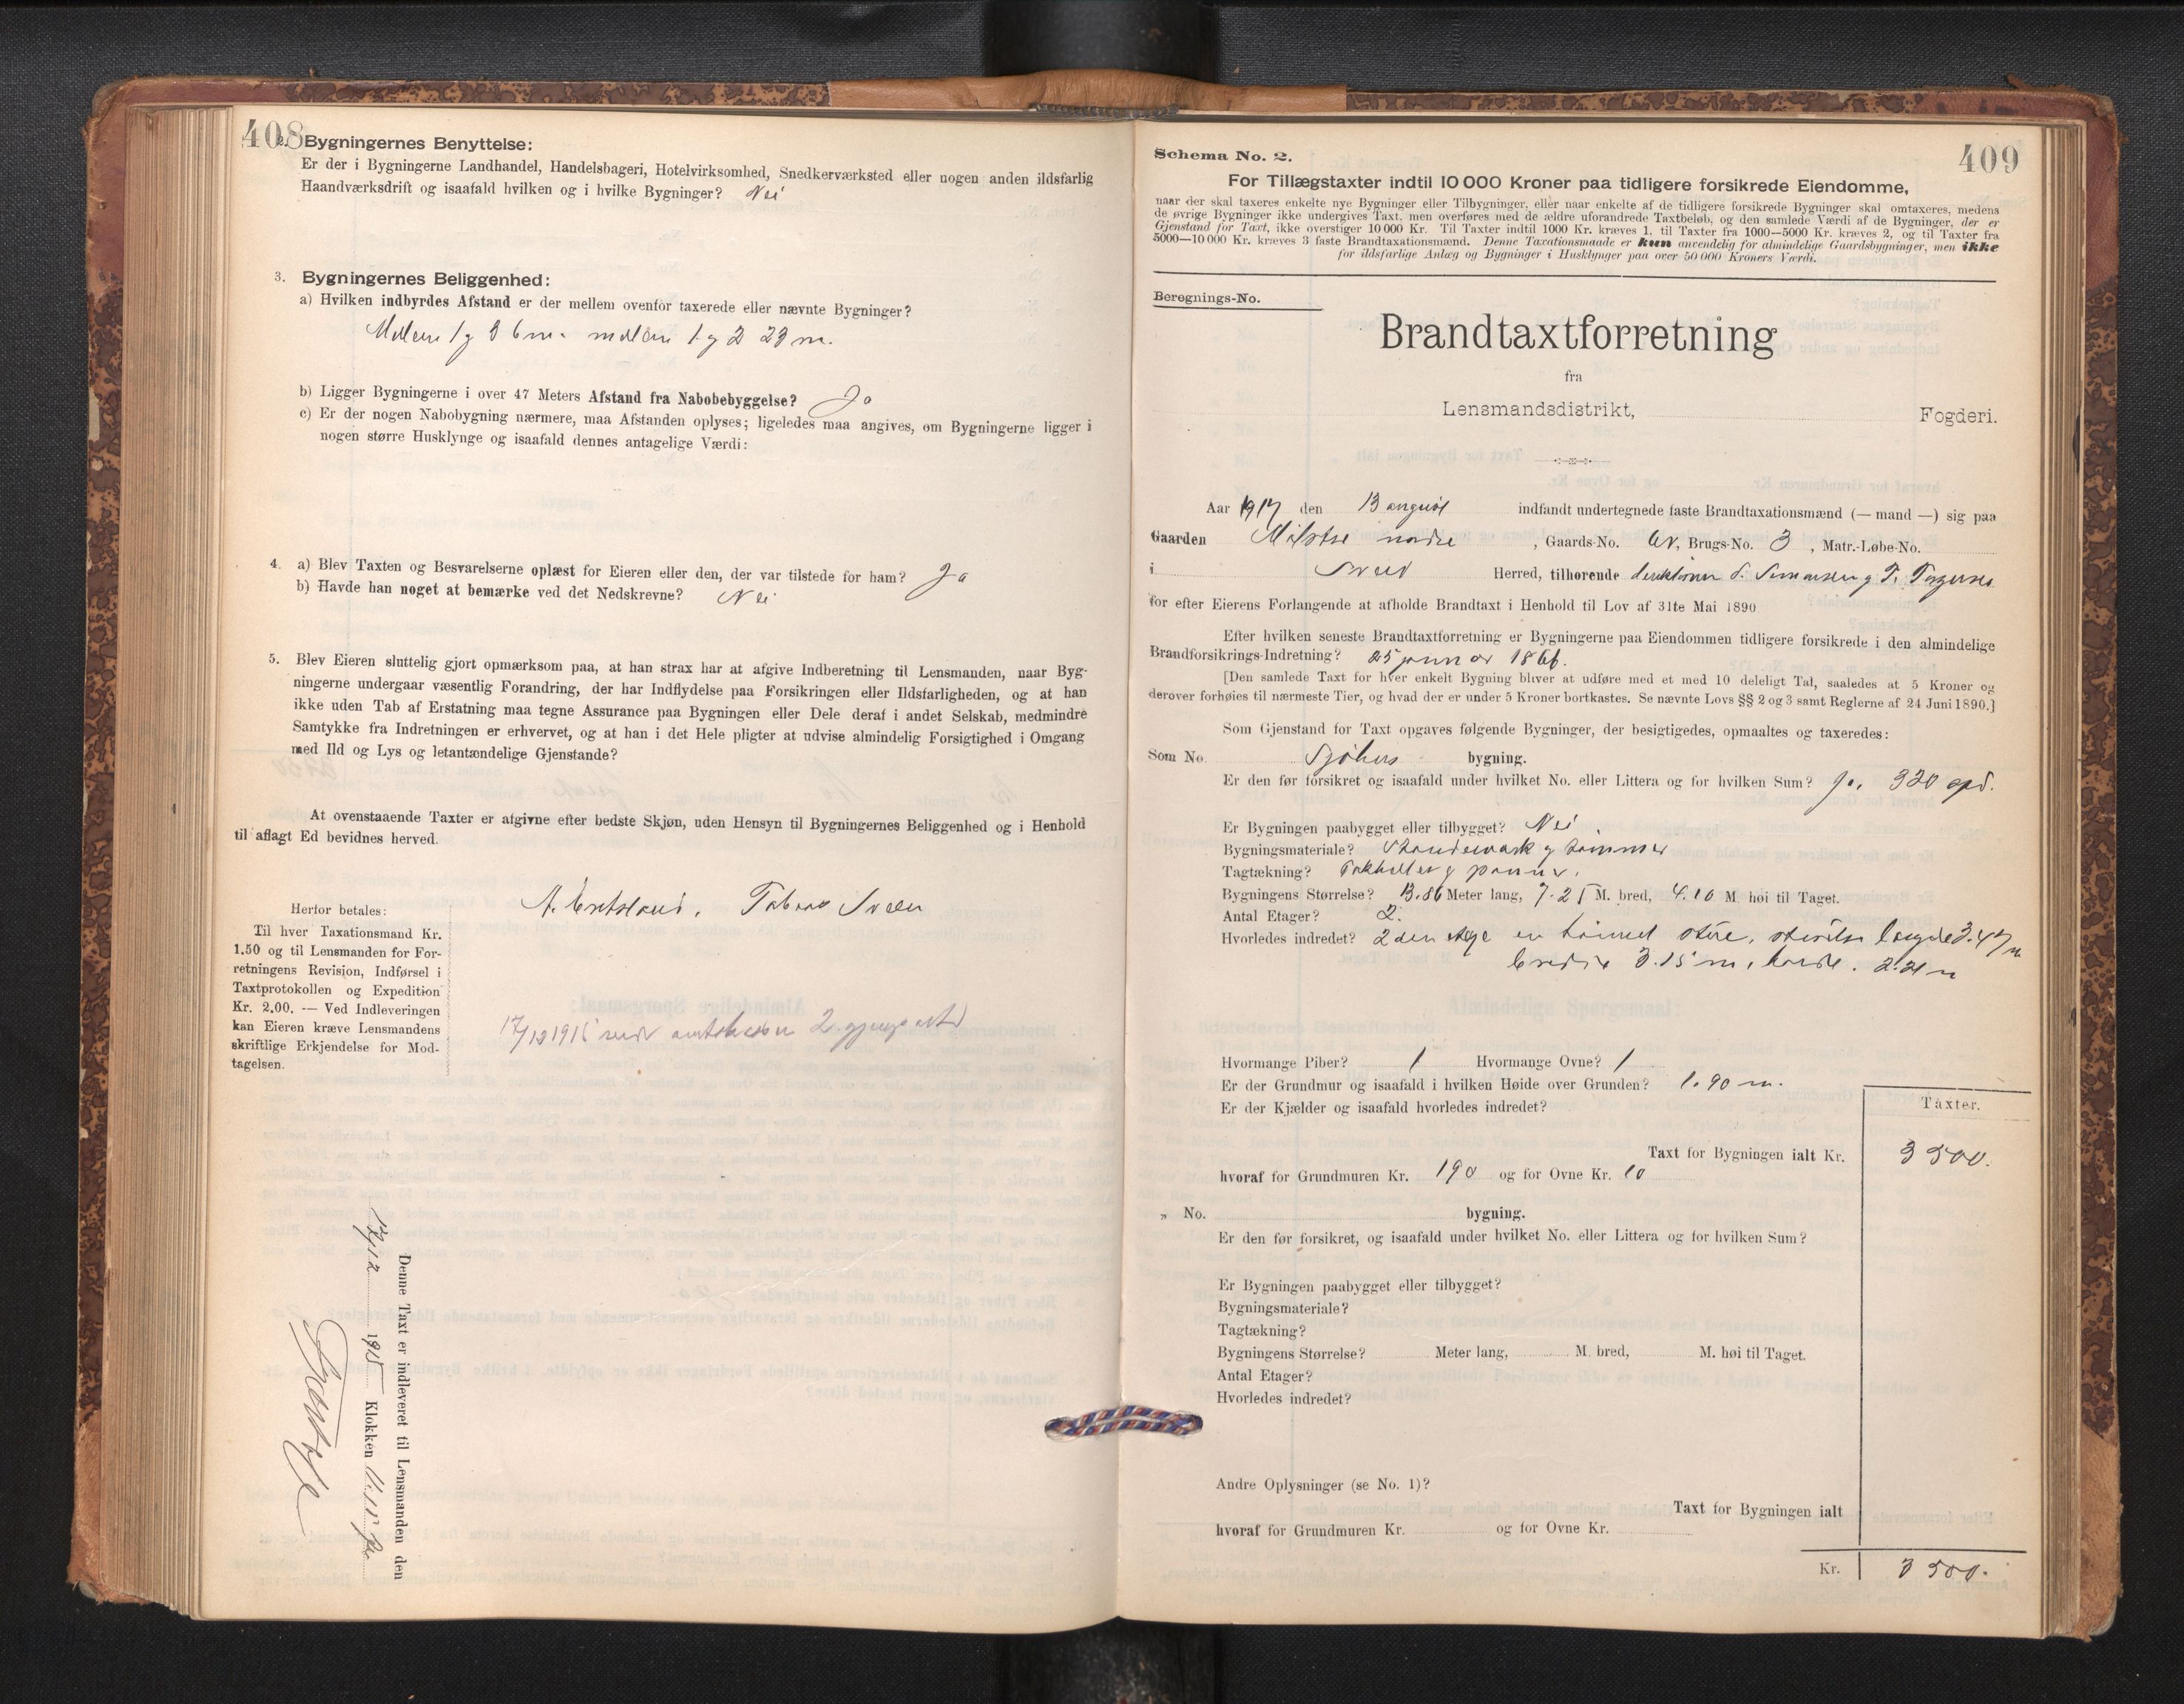 408
2. Bygningernes Benyttelse:
Er der i Bygningerne Landhandel, Handelsbageri, Hotelvirksomhed, Snedkerværksted eller nogen anden ildsfarlig
Haandværksdrift og isaafald hvilken og i hvilke Bygninger? Nei
3. Bygningernes Beliggenhed:
a) Hvilken indbyrdes Afstand er der mellem ovenfor taxerede eller nævnte Bygninger?
Mellem 1 og 3 6 m. mellem 1 og 2 23 m.
b) Ligger Bygningerne i over 47 Meters Afstand fra Nabobebyggelse? Ja
c) Er der nogen Nabobygning nærmere, maa Afstanden oplyses; ligeledes maa angives, om Bygningerne ligger i
nogen større Husklynge og isaafald dennes antagelige Værdi:
4. a) Blev Taxten og Besvarelserne oplæst for Eieren eller den, der var tilstede for ham? Ja
b) Havde han noget at bemærke ved det Nedskrevne? Nei
5. Blev Eieren sluttelig gjort opmærksom paa, at han strax har at afgive Indberetning til Lensmanden, naar Byg-
ningerne undergaar væsentlig Forandring, der har Indflydelse paa Forsikringen eller Ildsfarligheden, og at han
ikke uden Tab af Erstatning maa tegne Assurance paa Bygningen eller Dele deraf i andet Selskab, medmindre
Samtykke fra Indretningen er erhvervet, og at han i det Hele pligter at udvise almindelig Forsigtighed i Omgang
med Ild og Lys og letantændelige Gjenstande?
At ovenstaaende Taxter er afgivne efter bedste Skjøn, uden Hensyn til Bygningernes Beliggenhed og i Henhold
til aflagt Ed bevidnes herved.
Herfor betales:
Til hver Taxationsmand Kr.
1.50 og til Lensmanden for For-
retningens Revision, Indførsel i
Taxtprotokollen og Expedition
Kr. 2.00. — Ved Indleveringen
kan Eieren kræve Lensmandens
skriftlige Erkjendelse for Mod-
tagelsen.
17/12 1915
Denne Taxt er indleveret til Lensmanden den
17/12 1915 Klokken
409
Schema No. 2.
For Tillægstaxter indtil 10 000 Kroner paa tidligere forsikrede Eiendomme,
naar der skal taxeres enkelte nye Bygninger eller Tilbygninger, eller naar enkelte af de tidligere forsikrede Bygninger skal omtaxeres, medens
de øvrige Bygninger ikke undergives Taxt, men overføres med de ældre uforandrede Taxtbeløb, og den samlede Værdi af de Bygninger, der er
Gjenstand for Taxt, ikke overstiger 10 000 Kr. Til Taxter indtil 1000 Kr. kræves 1, til Taxter fra 1000—5000 Kr. kræves 2, og til Taxter fra
5000—10 000 Kr. kræves 3 faste Brandtaxationsmænd. Denne Taxationsmaade er kun anvendelig for almindelige Gaardsbygninger, men ikke
for ildsfarlige Anlæg og Bygninger i Husklynger paa over 50 000 Kroners Værdi.
Beregnings-No.
Brandtaxtforretning
fra
Lensmandsdistrikt, Fogderi.
Aar 1917 den 13 august indfandt undertegnede faste Brandtaxationsmænd (— mand —) sig paa
Gaarden Milstre nordre, Gaards-No. Brugs-No. 3, Matr.-Løbe-No.
i Sveio Herred, tilhørende
for efter Eierens Forlangende at afholde Brandtaxt i Henhold til Lov af 31te Mai 1890
Efter hvilken seneste Brandtaxtforretning er Bygningerne paa Eiendommen tidligere forsikrede i den almindelige
Brandforsikrings-Indretning? 25 januar 1866.
[Den samlede Taxt for hver enkelt Bygning bliver at udføre med et med 10 deleligt Tal, saaledes at 5 Kroner og
derover forhøies til nærmeste Tier, og hvad der er under 5 Kroner bortkastes. Se nævnte Lovs §§ 2 og 3 samt Reglerne af 24 Juni 1890.]
Som Gjenstand for Taxt opgaves følgende Bygninger, der besigtigedes, opmaaltes og taxeredes:
Som No. Sjøhus bygning.
Er den før forsikret og isaafald under hvilket No. eller Littera og for hvilken Sum? Ja, 320 spd.
Er Bygningen paabygget eller tilbygget? Nei
Bygningsmateriale? Standerværk og tømmer
Tagtækning? Takheller og panner.
Bygningens Størrelse? 13.86 Meter lang, 7.25 M. bred, 4.10 M. høi til Taget.
Antal Etager? 2.
Hvorledes indredet? 2den etage en tømret stue, størrelse længde 3.47 m
bredde 3.15 m, høide. 2.21 m
Hvormange Piber? 1 Hvormange Ovne? 1
Er der Grundmur og isaafald i hvilken Høide over Grunden? 1.90 m.
Er der Kjælder og isaafald hvorledes indredet?
Taxter.
Taxt for Bygningen ialt Kr. 3500.
hvoraf for Grundmuren Kr. 190 og for Ovne Kr. 10
„ No. bygning.
Er den før forsikret, og isaafald under hvilket No. eller Littera og for hvilken Sum?
Er Bygningen paabygget eller tilbygget?
Bygningsmateriale?
Tagtækning?
Bygningens Størrelse? Meter lang, M. bred, M. høi til Taget.
Antal Etager?
Hvorledes indredet?
Andre Oplysninger (se No. 1)?
Taxt for Bygningen ialt
hvoraf for Grundmuren Kr. og for Ovne Kr.
Kr. 3500.